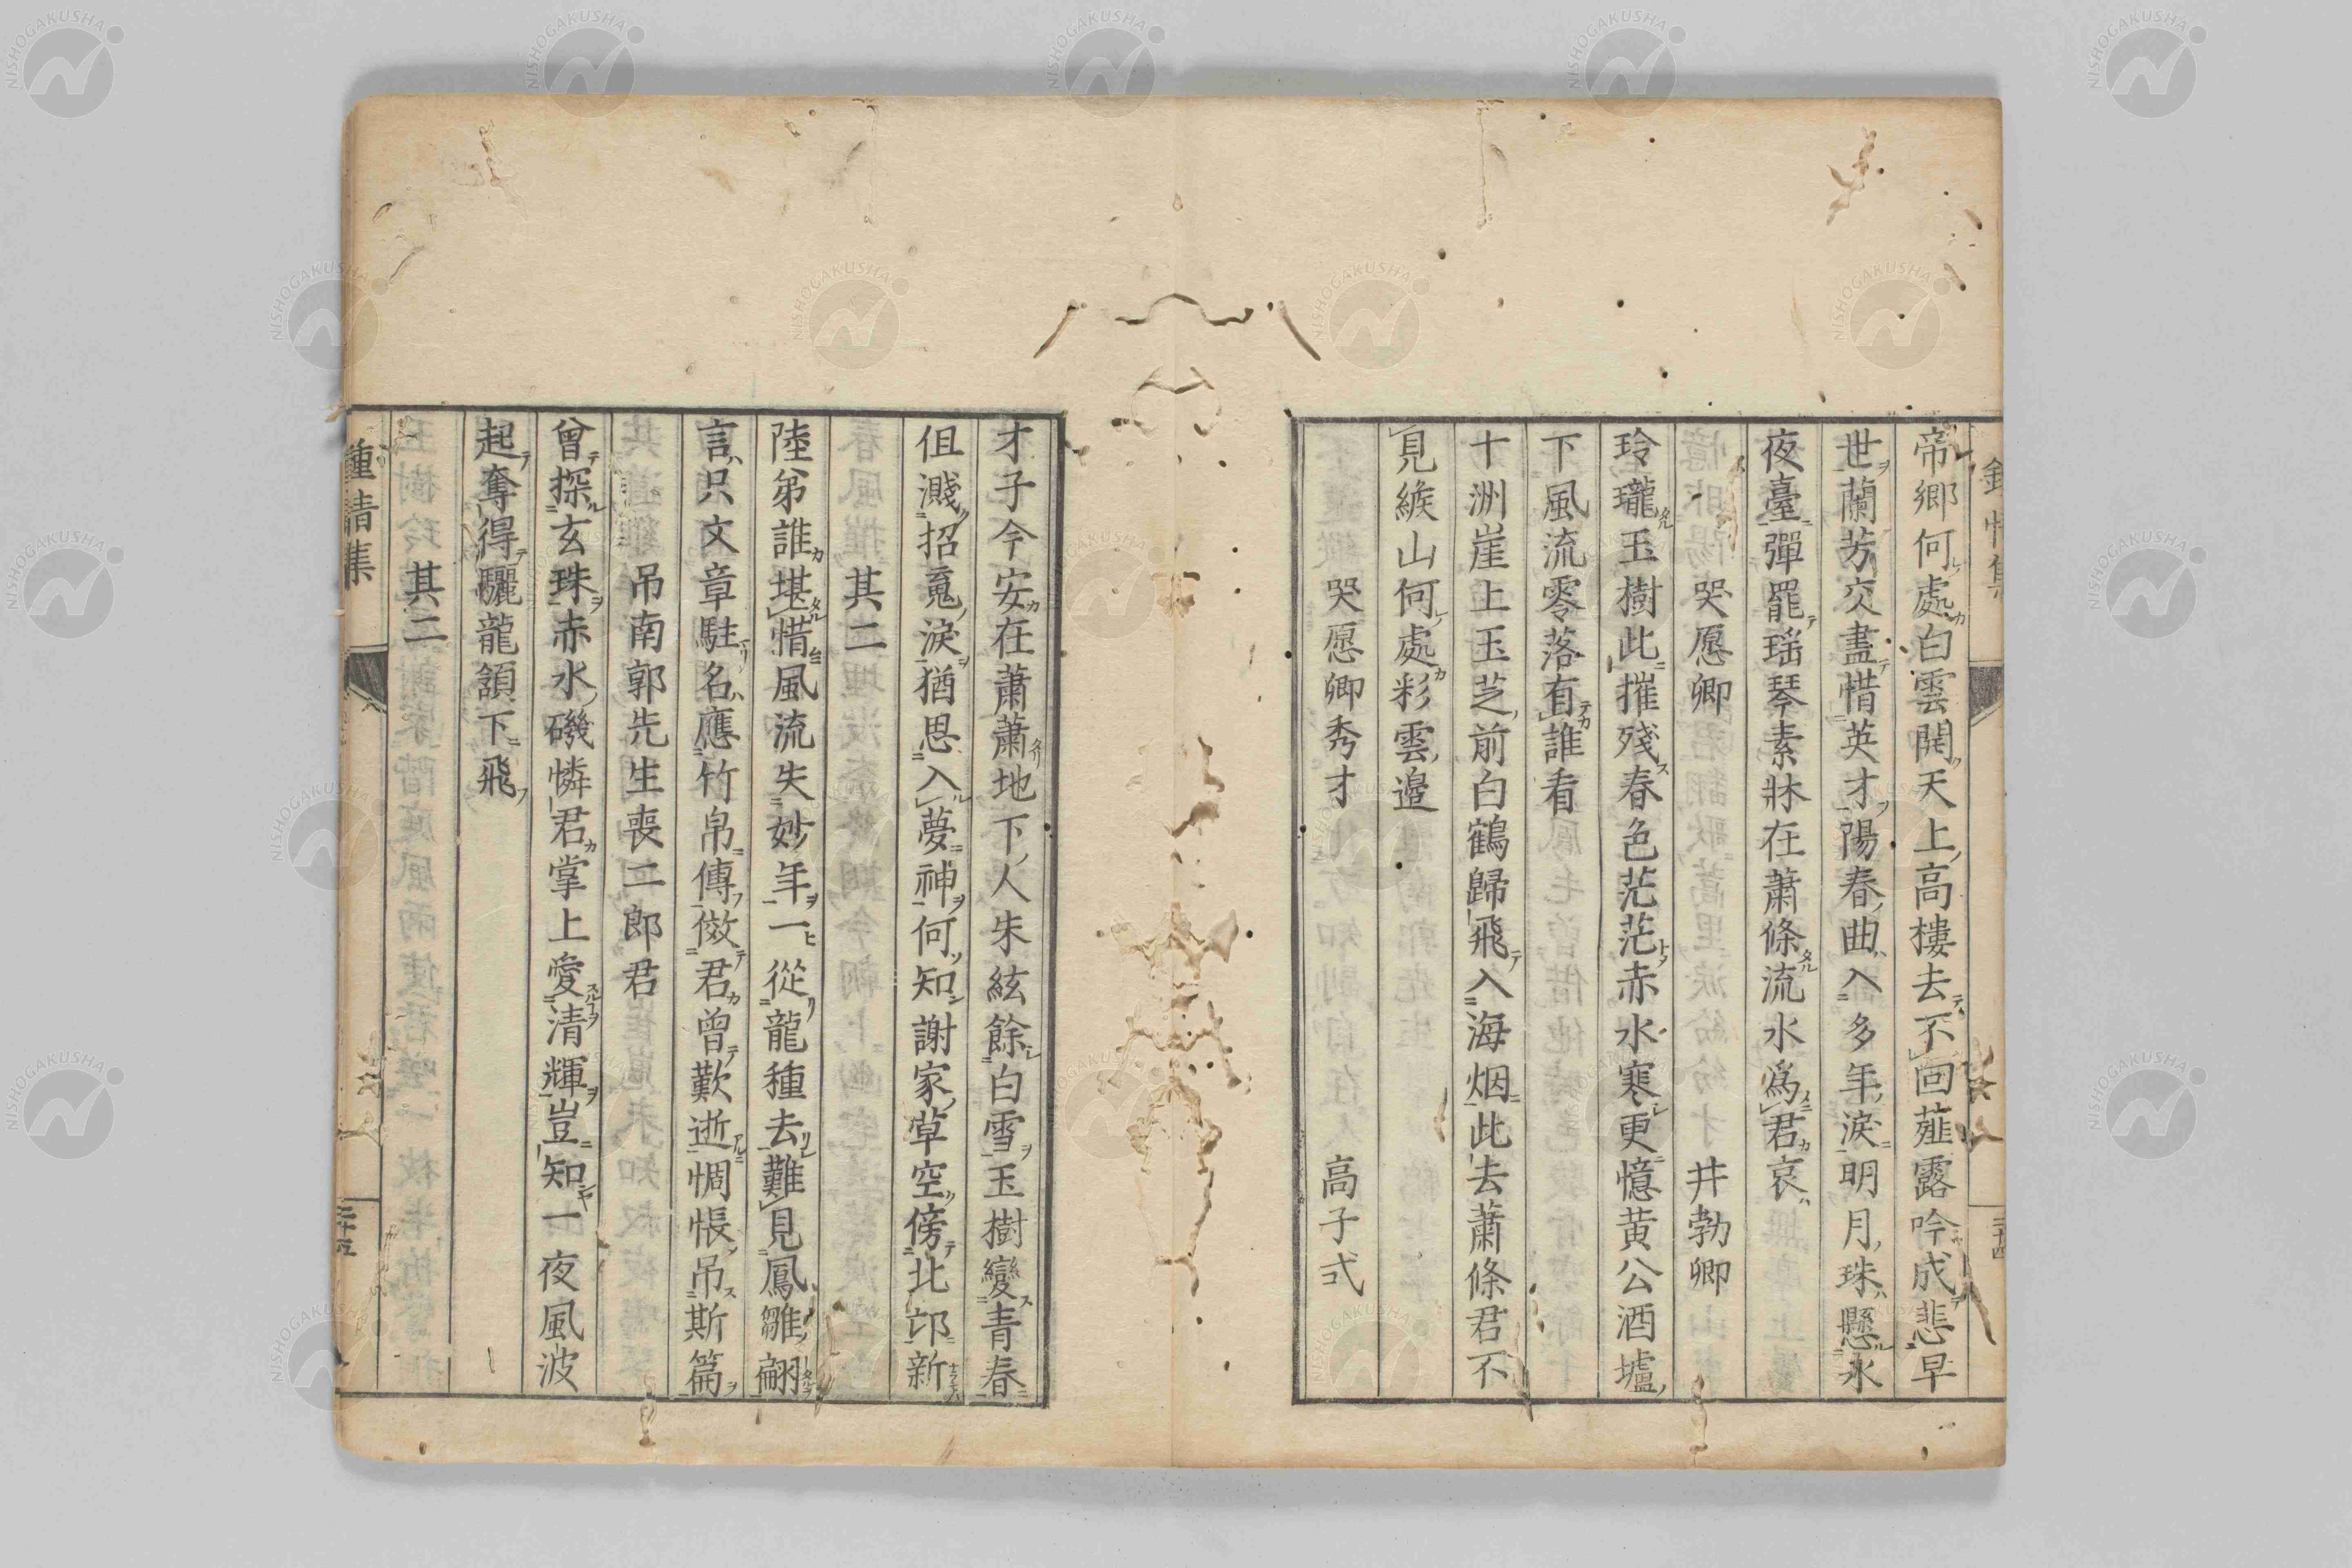 帝郷何處白雲開天上高樓去不回薤露吟成悲早
世蘭芳交盡惜英才陽春曲入多年淚明月珠懸永
夜臺彈罷瑶琴素牀在蕭條流水爲君哀
哭愿卿 井勃卿
玲瓏玉樹此摧殘春色茫茫赤水寒更憶黄公酒壚
下風流零落有誰看
十洲崖上玉芝前白鶴歸飛入海烟此去蕭條君不
見緱山何處彩雲邉
哭愿卿秀才 高子式
才子今安在蕭蕭地下人朱絃餘白雪玉樹變青春
但濺招䰟淚猶思入夢神何知謝家草空傍北邙新
其二
陸弟誰堪惜風流失妙年一從龍種去難見鳳雛翩
言只文章駐名應竹帛傳傚君曾歎逝惆悵吊斯篇
吊南郭先生喪二郎君
曾探玄珠赤水磯憐君掌上愛清輝豈知一夜風波
起奪得驪龍頷下飛
其二
鍾情集
二十五
二十四
NISHOGAKUSHA